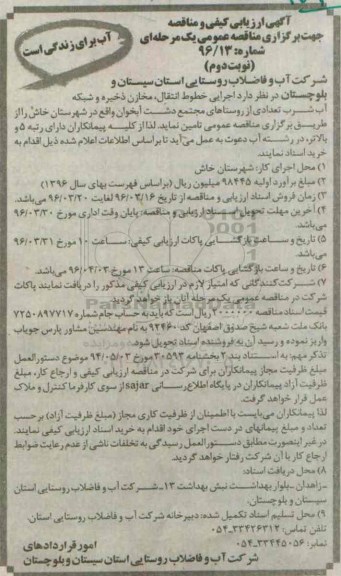 آگهی ارزیابی کیفی و مناقصه
جهت برگزاری مناقصه عمومی یک مرحله‌ای
شماره: ۹۶/۱۳
(نوبت دوم)
آب برای زندگی است
شرکت آب و فاضلاب روستایی استان سیستان و
بلوچستان در نظر دارد اجرایی خطوط انتقال، مخازن ذخیره و شبکه
آب شرب تعدادی از روستاهای مجتمع دشت آبخوان واقع در شهرستان خاش را از
طریق برگزاری مناقصه عمومی تامین نماید. لذا از کلیه پیمانکاران دارای رتبه ۵ و
بالاتر، در رشته آب دعوت به عمل می‌آید تا براساس اطلاعات اعلام شده ذیل اقدام به
خرید اسناد نمایند.
۱) محل اجرای کار: شهرستان خاش
۲) مبلغ برآورد اولیه ۹۸۴۴۵ میلیون ریال (براساس فهرست بهای سال ۱۳۹۶)
۳) زمان فروش اسناد ارزیابی و مناقصه: از تاریخ ۹۶/۰۳/۱۶ لغایت ۹۶/۰۳/۲۰ می‌باشد.
۴) آخرین مهلت تحویل اسناد ارزیابی و مناقصه: پایان وقت اداری مورخ ۹۶/۰۳/۳۰
می‌باشد.
۵) تاریخ و ساعت بازگشایی پاکات ارزیابی کیفی: ساعت ۱۰ مورخ ۹۶/۰۳/۳۱
می‌باشد.
۶) تاریخ و ساعت بازگشایی پاکات مناقصه: ساعت ۱۳ مورخ ۹۶/۰۴/۰۳ می‌باشد.
۷) شرکت‌کنندگانی که امتیاز لازم در ارزیابی کیفی مذکور را دریافت نمایند پاکات
شرکت در مناقصه عمومی یک مرحله آنان باز خواهد گردید.
قیمت اسناد مناقصه ۲۰۰۰۰۰۰ ریال است که باید به حساب جام شماره ۷۲۵۰۸۹۷۷۱۷
بانک ملت شعبه شیخ صدوق اصفهان کد ۹۲۴۶۰ به نام مهندسین مشاور پارس جویاب
واریز نموده و رسید آن به فروشنده اسناد تحویل شود.
تذکر مهم: به استناد بند ۲ بخشنامه ۳۰۵۹۳ مورخ ۹۴/۰۵/۰۳ موضوع دستورالعمل
مبلغ ظرفیت مجاز پیمانکاران برای شرکت در مناقصه ارزیابی کیفی و ارجاع کار، مبلغ
ظرفیت آزاد پیمانکاران در پایگاه اطلاع‌رسانی sajar از سوی کارفرما کنترل و ملاک
عمل قرار خواهد گرفت.
لذا پیمانکاران می‌بایست با اطمینان از ظرفیت کاری مجاز (مبلغ ظرفیت آزاد) برحسب
تعداد و مبلغ پیمانهای در دست اجرای خود اقدام به خرید اسناد ارزیابی کیفی نمایند.
در غیر اینصورت مطابق دستورالعمل رسیدگی به تخلفات ناشی از عدم رعایت ضوابط
ارجاع کار با آن شرکت رفتار خواهد گردید.
۸) محل دریافت اسناد:
-زاهدان - بلوار بهداشت نبش بهداشت ۱۳- شرکت آب و فاضلاب روستایی استان
سیستان و بلوچستان.
۹) محل تسلیم اسناد تکمیل شده: دبیرخانه شرکت آب و فاضلاب روستایی استان.
تلفن تماس: ۳۳۴۲۶۳۱۲-۰۵۴
تماس: ۳۳۴۴۵۰۵۶-۰۵۴
امور قراردادهای
شرکت آب و فاضلاب روستایی استان سیستان و بلوچستان